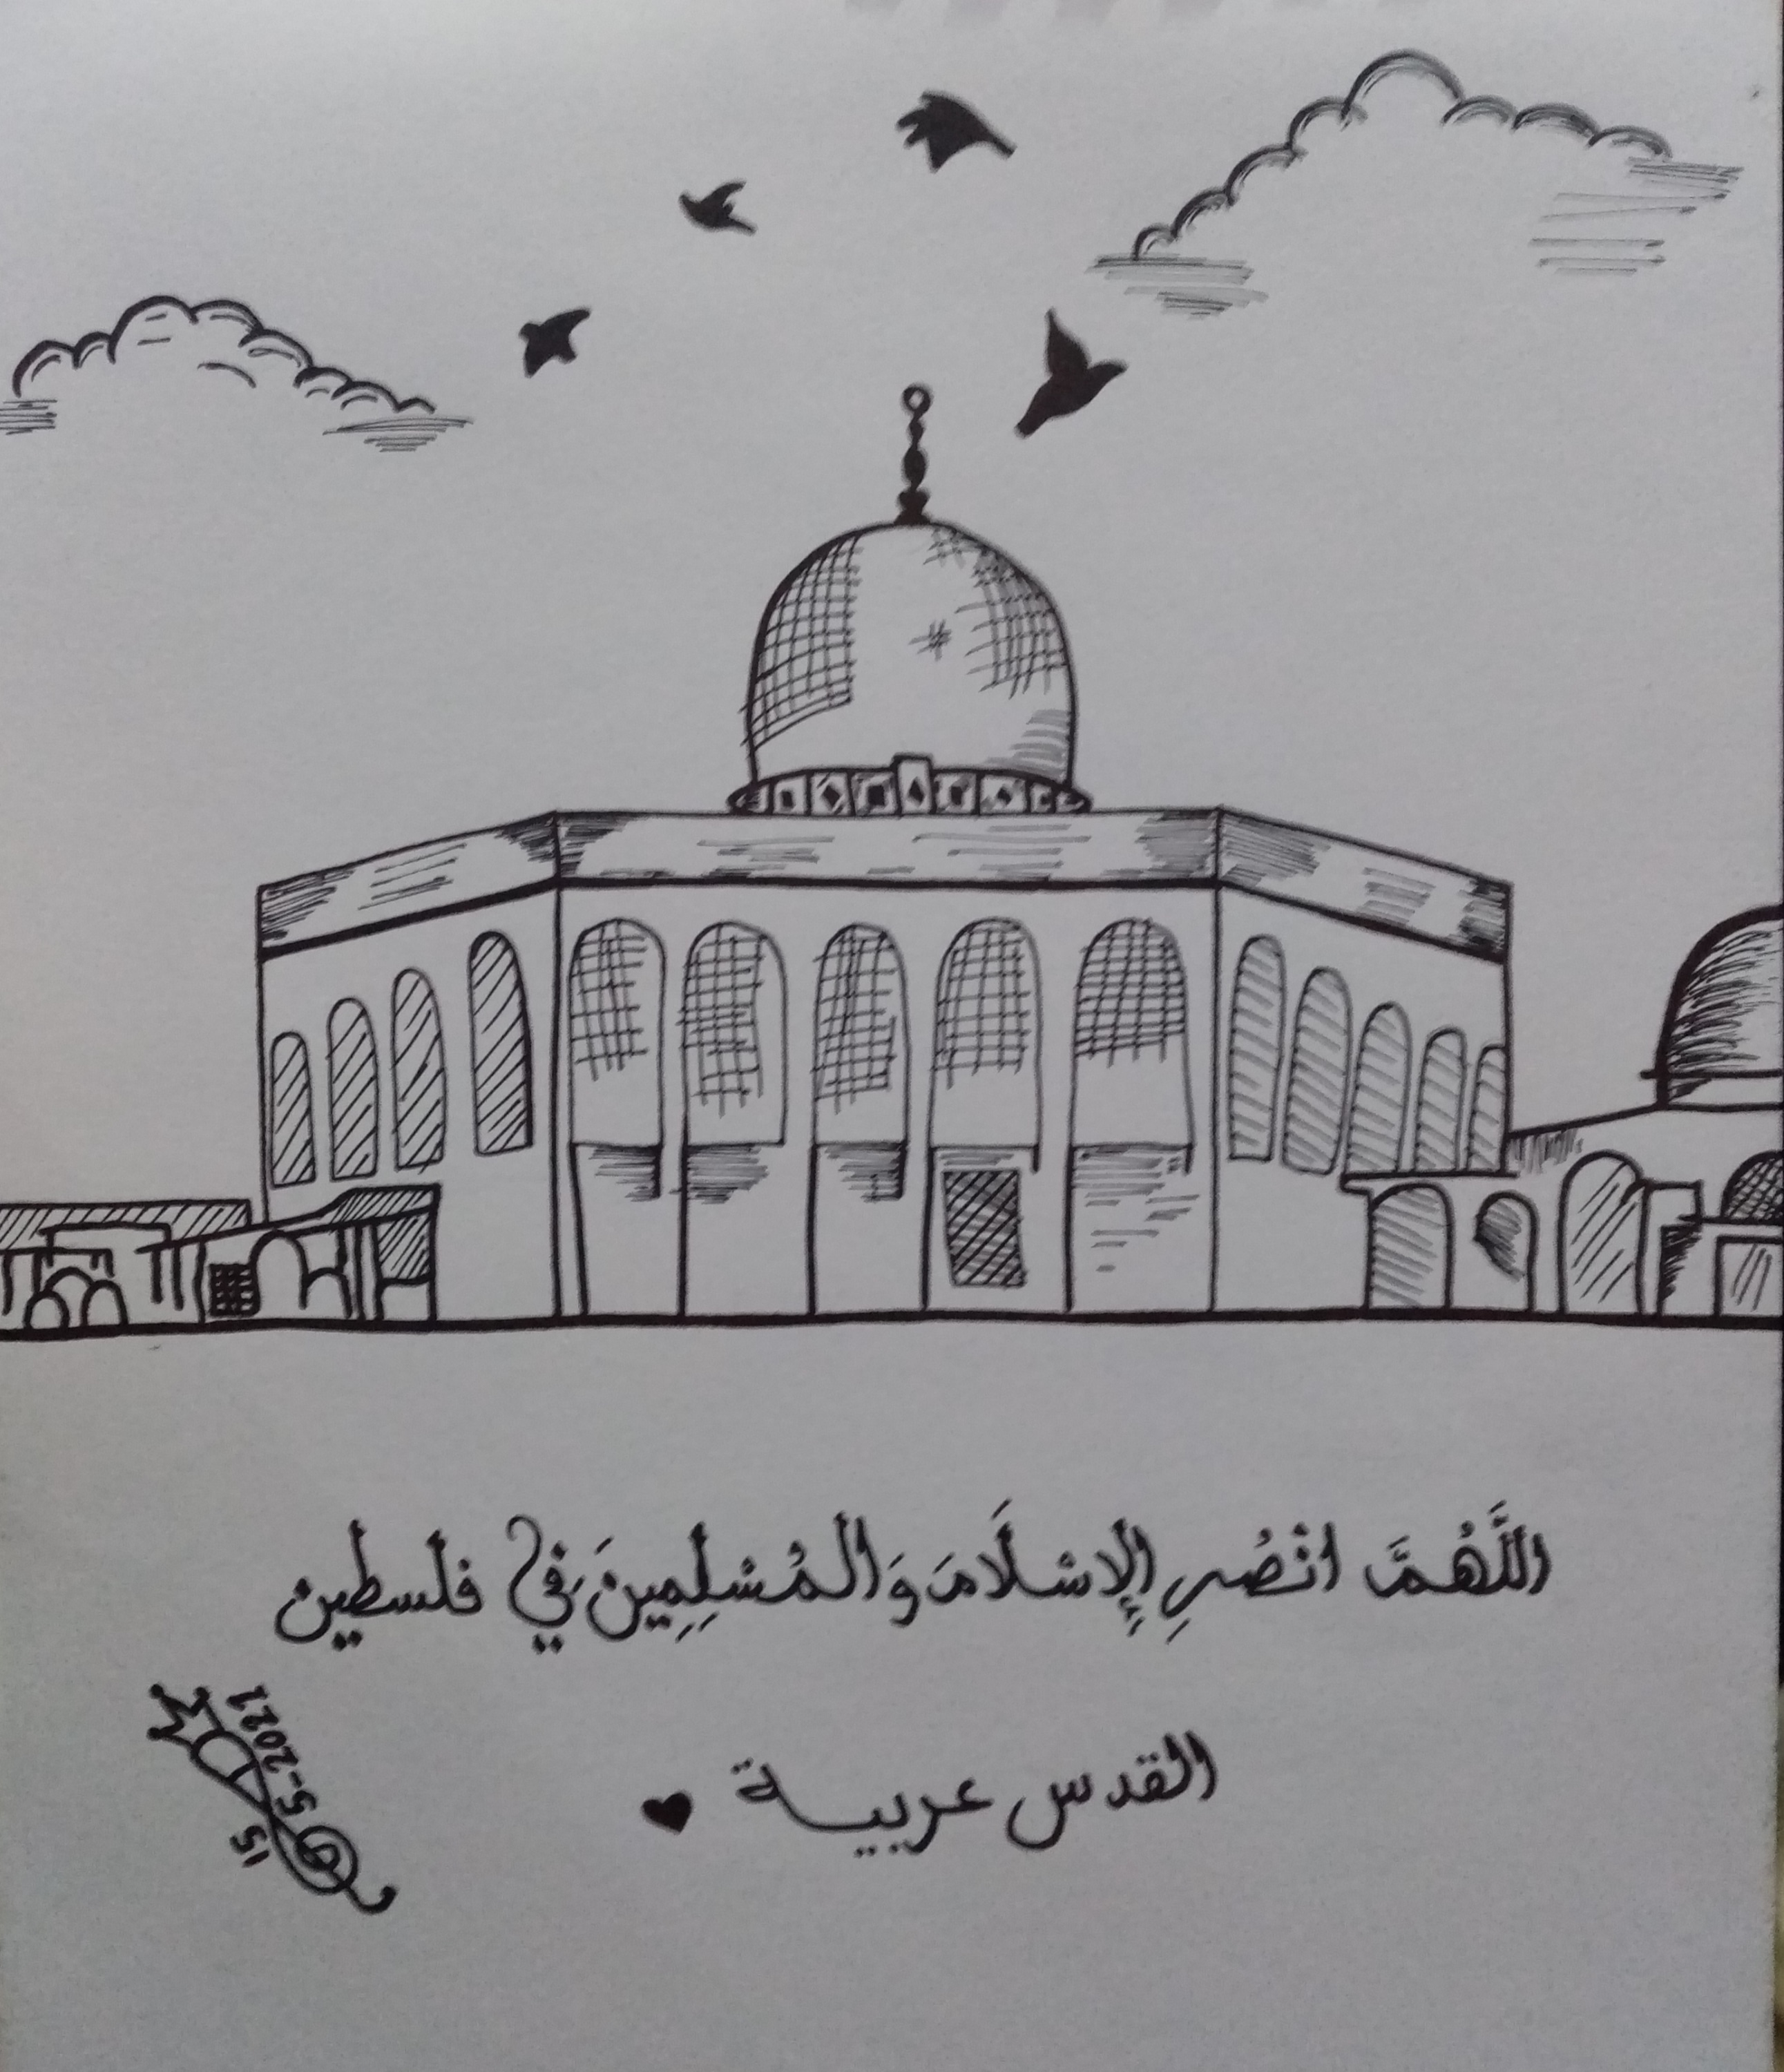 اللَّهُمَّ انْصُرِ الإِسْلَامَ وَالْمُسْلِمِينَ فِي فلسطين
القدس عربية
15-5-2021